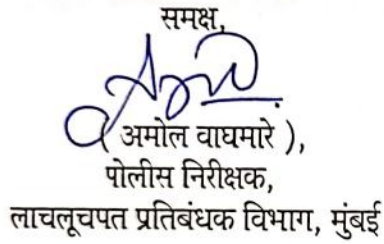 समक्ष,
( अमोल वाघमारे ),
पोलीस निरीक्षक,
लाचलूचपत प्रतिबंधक विभाग, मुंबई